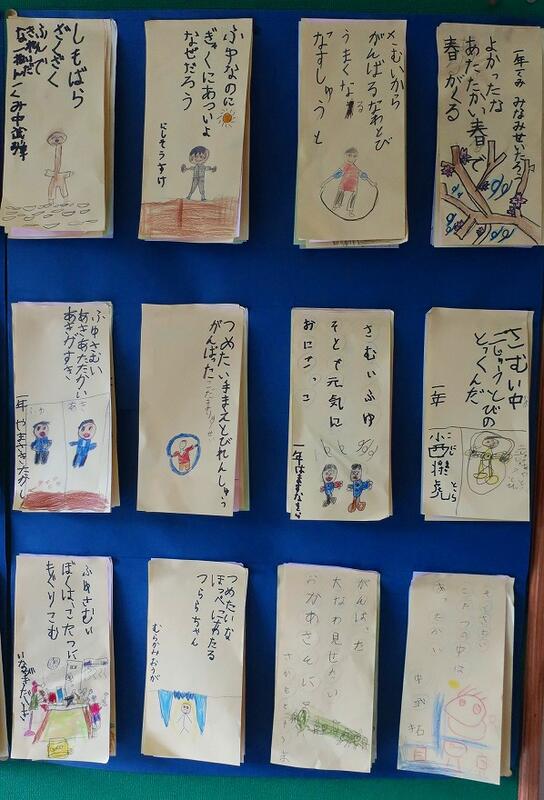 よかったな
あたたかい春で
春がくる
一年
さむいから
がんばるなわとび
うまくなる
なすしゅうと
ふゆなのに
ぎゃくにあついよ
なぜだろう
にしそうすけ
しもばしら
ざくざく
ふんで
さむい中
二じゅうとびの
とっくんだ
一年
さむいふゆ
そとで元気に
おにごっこ
つめたい手まえとびれんしゅう
がんばった
ふゆさむい
あさあたたかい
あさがすき
ふゆ
あさ
一年 やまさきたかし
こたつの中は
あったかい
がんばった
大なわ見せたい
おかあさんに
つめたいな
ほっぺにあたる
つららちゃん
むらかみおうが
ふゆさむい
ぼくは、こたつに
もぐりこむ